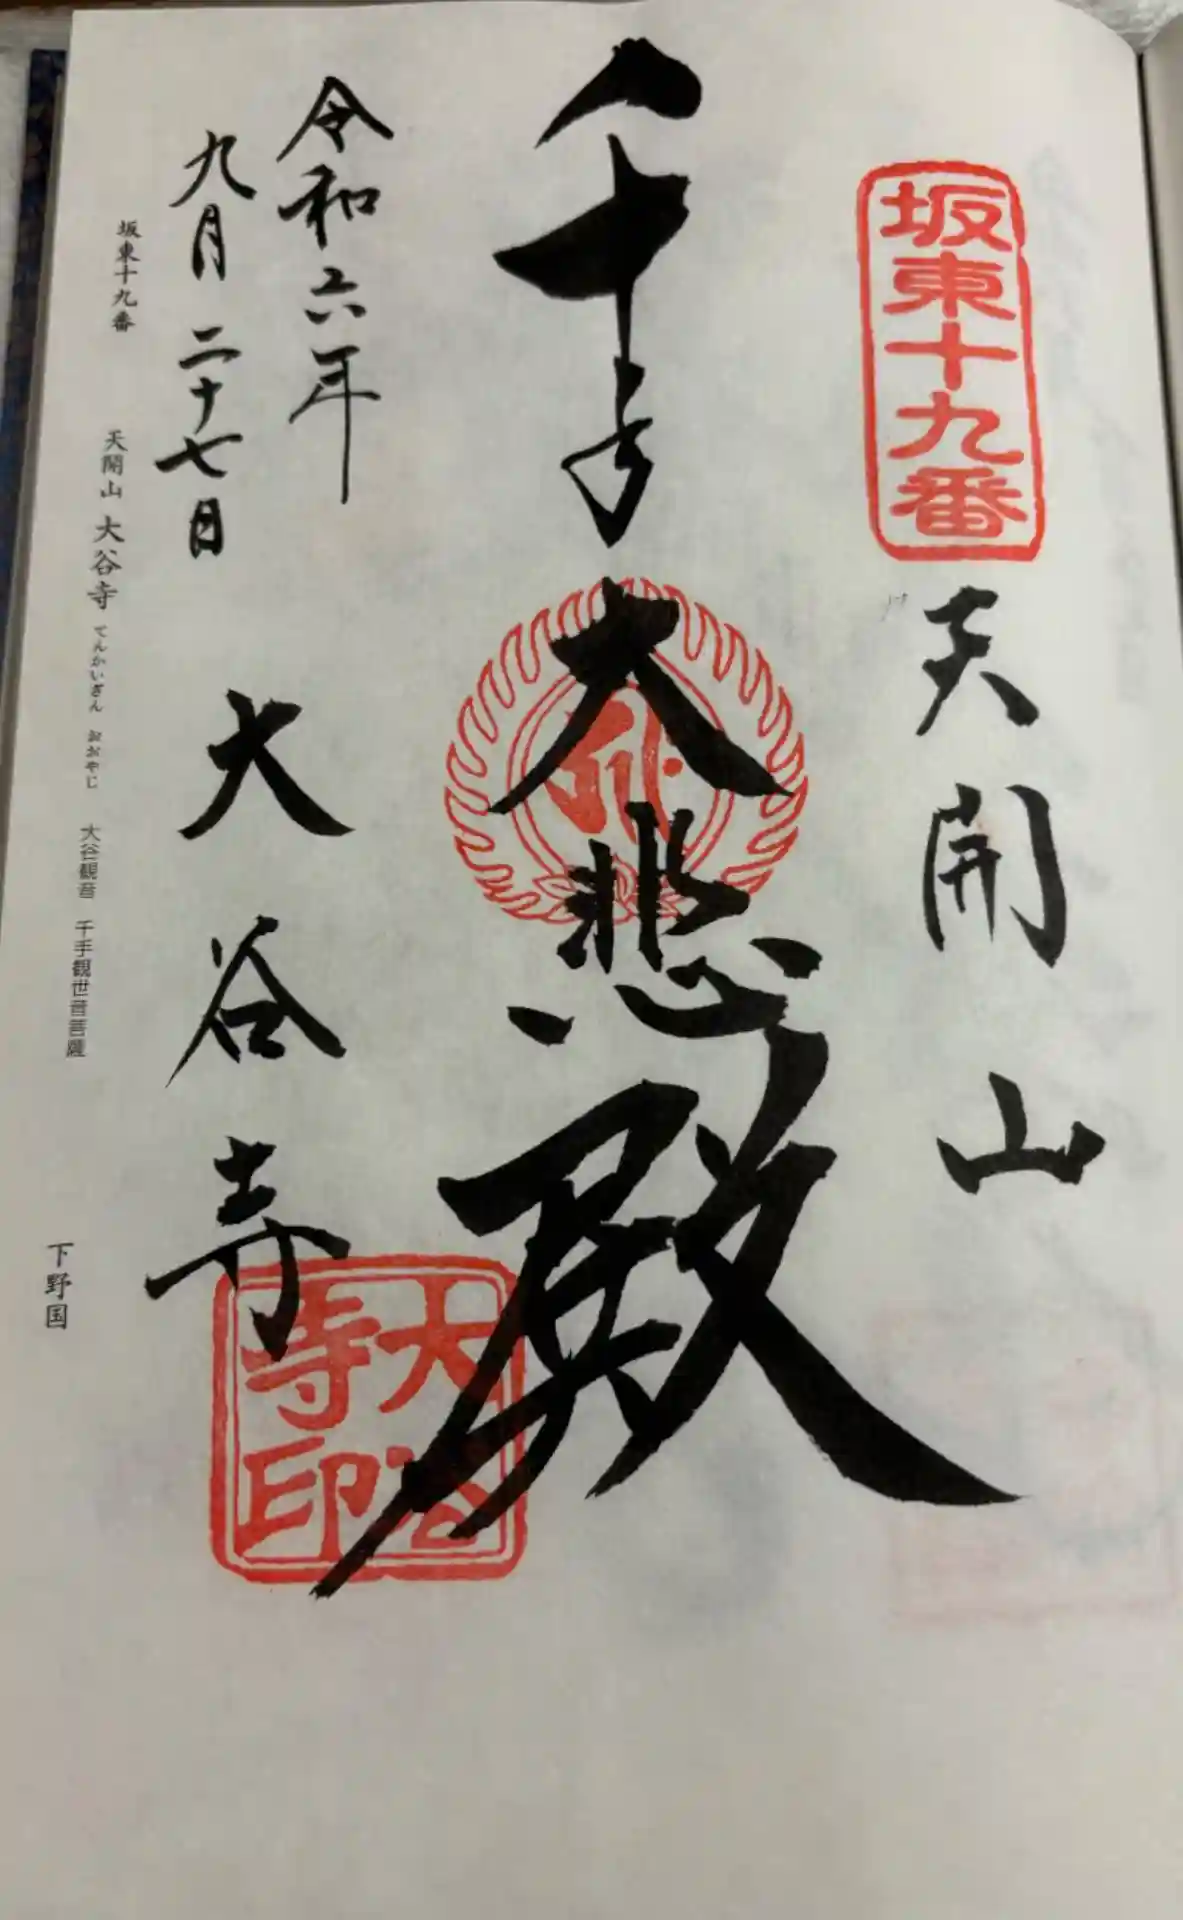 坂東十九番
天開山
千手大悲殿
令和六年
九月二十七日
大谷寺
大谷寺印
坂東十九番 天開山 大谷寺 てんかいざん おおやじ 大谷観音 千手観世音菩薩 下野国